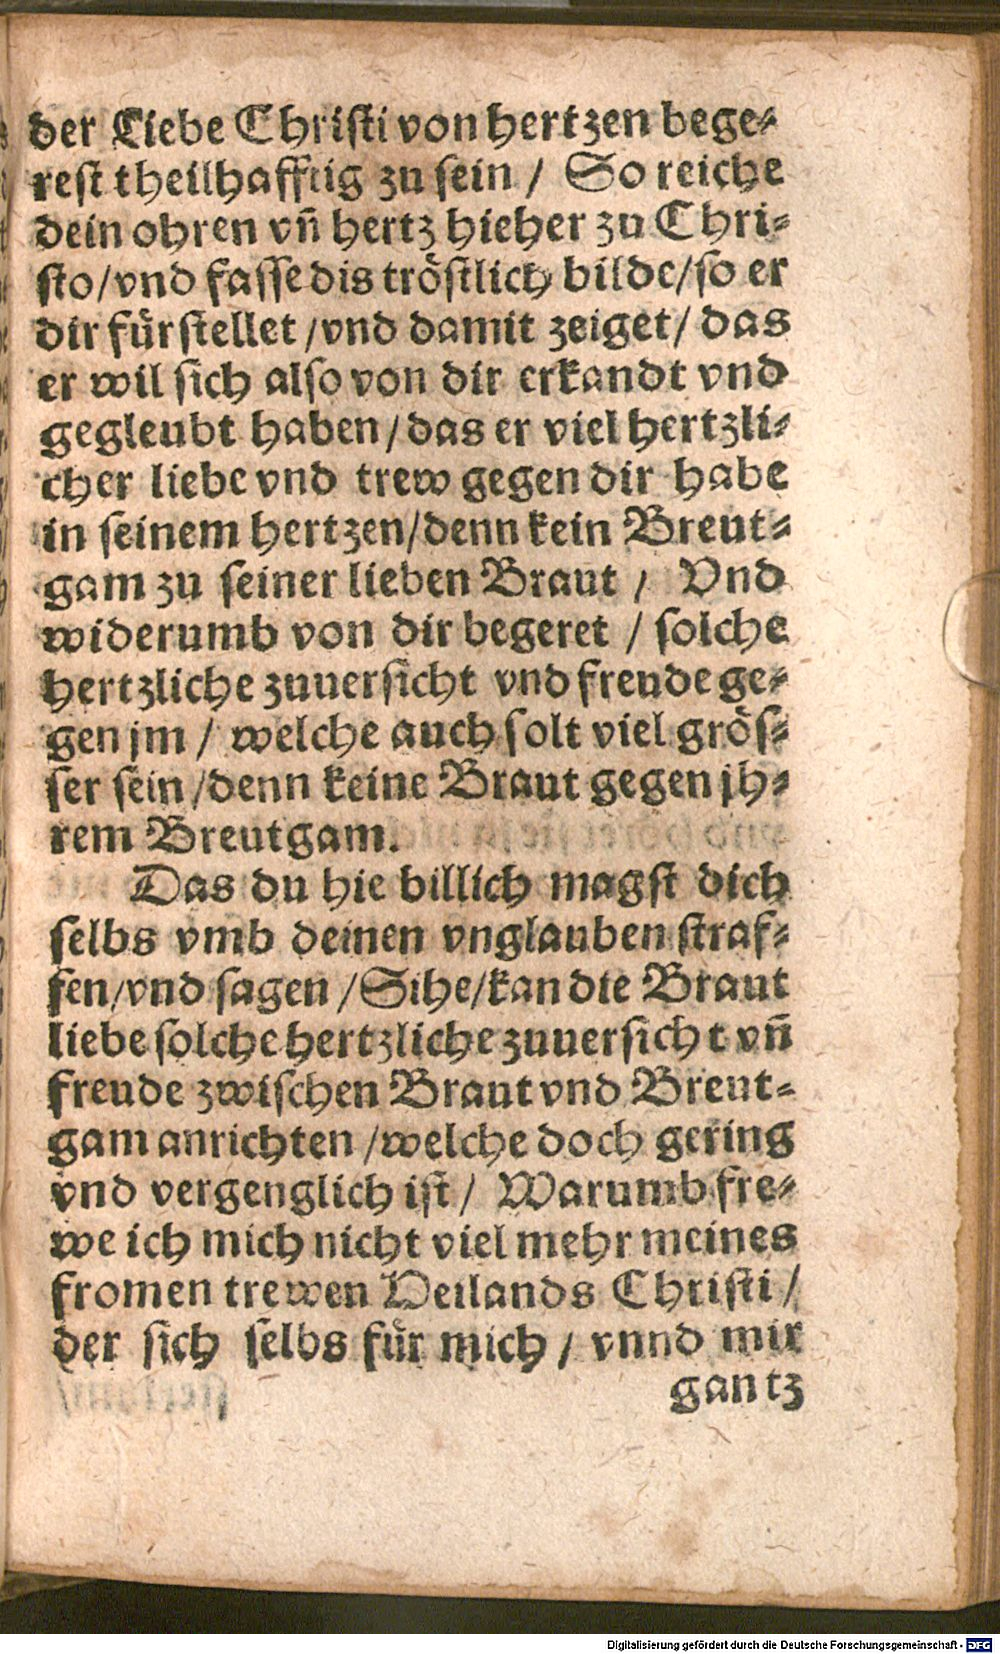 der Liebe Christi von hertzen bege-
rest theilhafftig zu sein / So reiche
dein ohren vn̄ hertz hieher zu Chri-
sto/vnd fasse dis tröstlich bilde/so er
dir fürstellet /vnd damit zeiget/ das
er wil sich also von dir erkandt vnd
gegleubt haben/das er viel hertzli-
cher liebe vnd trew gegen dir habe
in seinem hertzen/denn kein Breut-
gam zu seiner lieben Braut / Vnd
widerumb von dir begeret / solche
hertzliche zuuersicht vnd freude ge-
gen jm / welche auch solt viel grös-
ser sein /denn keine Braut gegen jh-
rem Breutgam.
Das du hie billich magst dich
selbs vmb deinen vnglauben straf-
fen/vnd sagen /Sihe/kan die Braut
liebe solche hertzliche zuuersicht vn̄
freude zwischen Braut vnd Breut-
gam anrichten /welche doch gering
vnd vergenglich ist / Warumb fre-
we ich mich nicht viel mehr meines
fromen trewen Heilands Christi /
der sich selbs für mich / vnnd mir
gantz
Digitalisierung gefördert durch die Deutsche Forschungsgemeinschaft - DFG